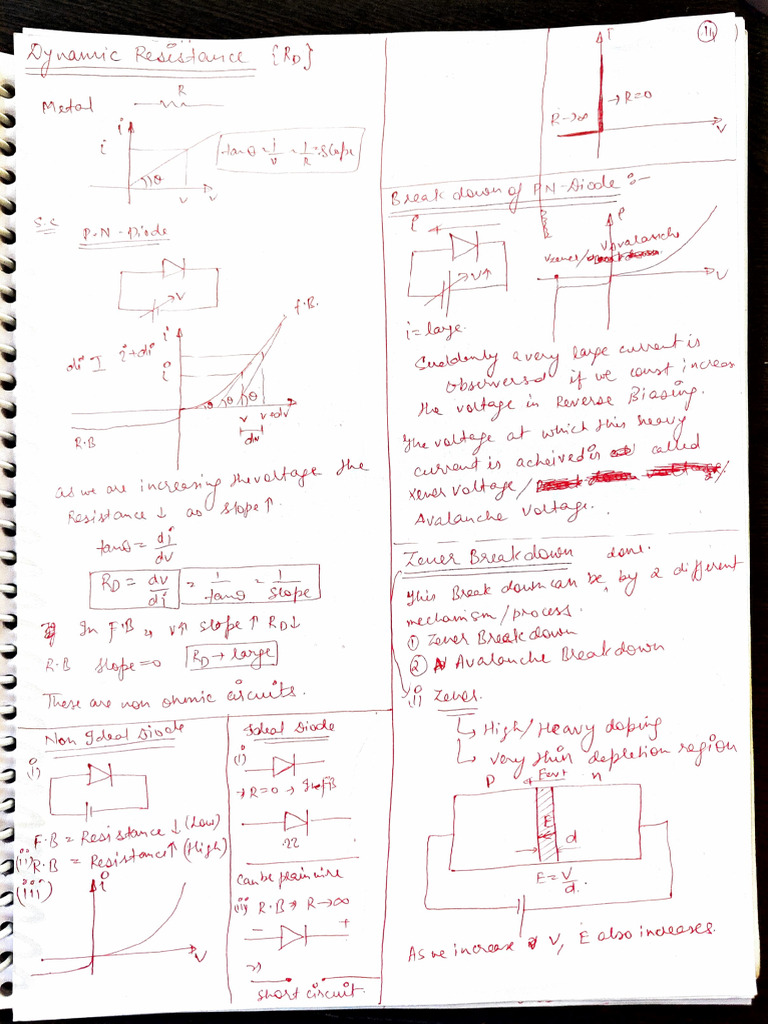 Dynamic Resistance {RD}
Metal
R
i
i
θ
v
v
tanθ = i/v = 1/R = slope
S.C
P-N-Diode
v
f.B.
i
di
i+di
i
θ
θ
θ
v
v+dv
dv
R.B
as we are increasing the voltage the
Resistance ↓ as slope ↑.
tanθ = di/dv
RD = dv/di = 1/tanθ = 1/Slope
In F.B v↑ slope ↑ RD↓
R.B slope = 0 RD → large
These are non ohmic circuits.
Non Ideal Diode
(i)
F.B = Resistance ↓ (Low)
(ii) R.B = Resistance ↑ (High)
(iii)
i
v
Ideal Diode
(i)
→ R=0 → In FB
Can be plain wire
(ii) R.B → R→∞
-
+
short circuit.
11
R→∞
→ R=0
v
Break down of PN-Diode :-
v↑
i = large.
v avalanche
vzener/
v
Suddenly a very large current is
observersd if we const increas
the voltage in Reverse Biasing.
The voltage at which this heavy
current is acheived is called
xener voltage/
Avalanche voltage.
Zener Breakdown
done.
This Break down can be by 2 different
mechanism/process.
① Zener Breakdown
② Avalanche Breakdown
(i) Zener.
↳ High/Heavy doping
↳ very thin depletion region
P
Eext
n
E
d
E = V/d.
As we increase V, E also increases.